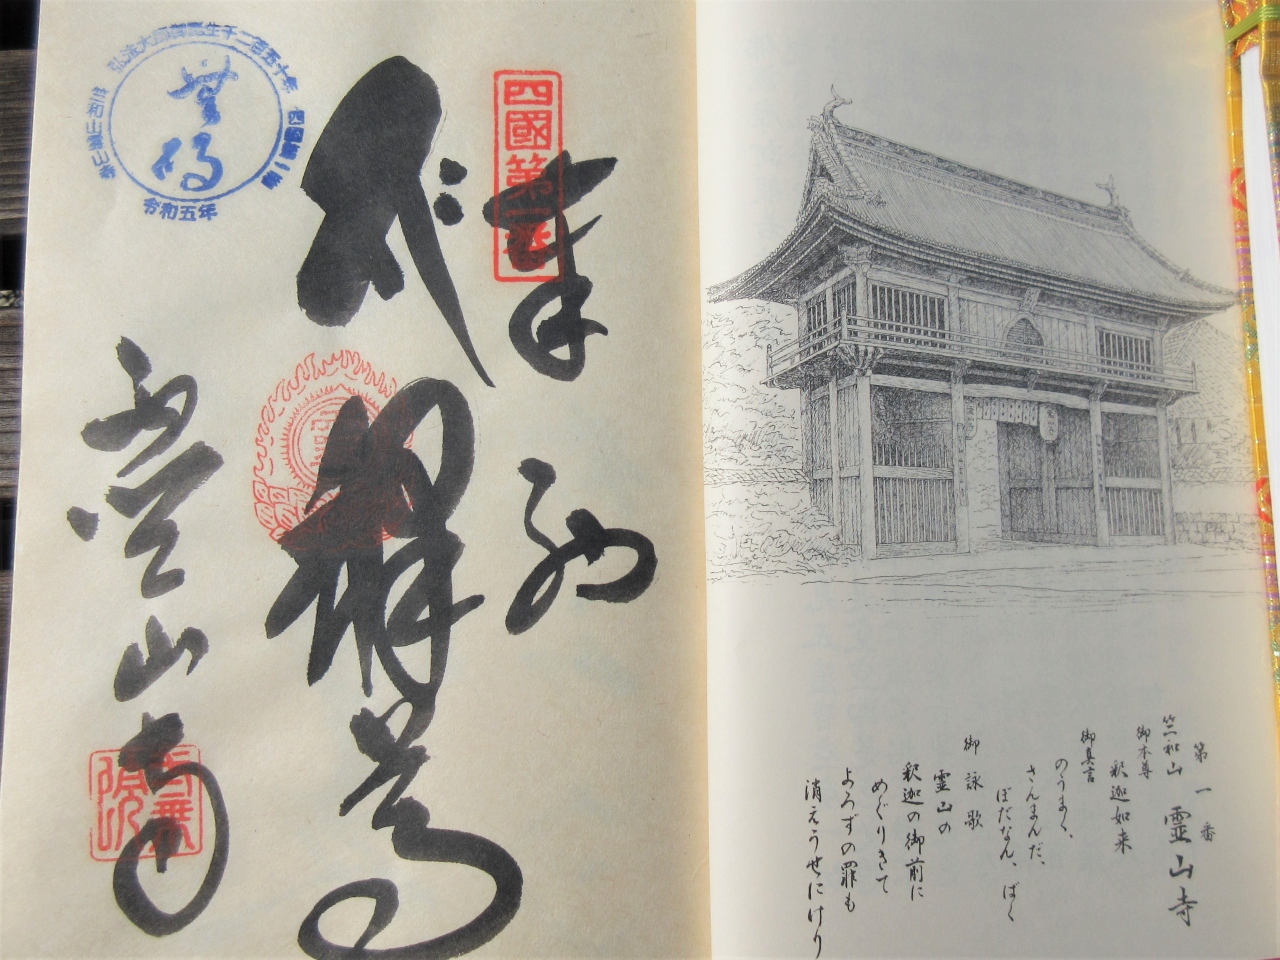 第一番
竺和山 霊山寺
御本尊
釈迦如来
御真言
のうまく、
さんまんだ、
ぼだなん、ばく
御詠歌
霊山の
釈迦の御前に
めぐりきて
よろずの罪も
消えうせにけり
四國第一番
奉納
霊山寺
弘法大師御誕生千二百五十年
四國第一番
竺和山霊山寺
令和五年